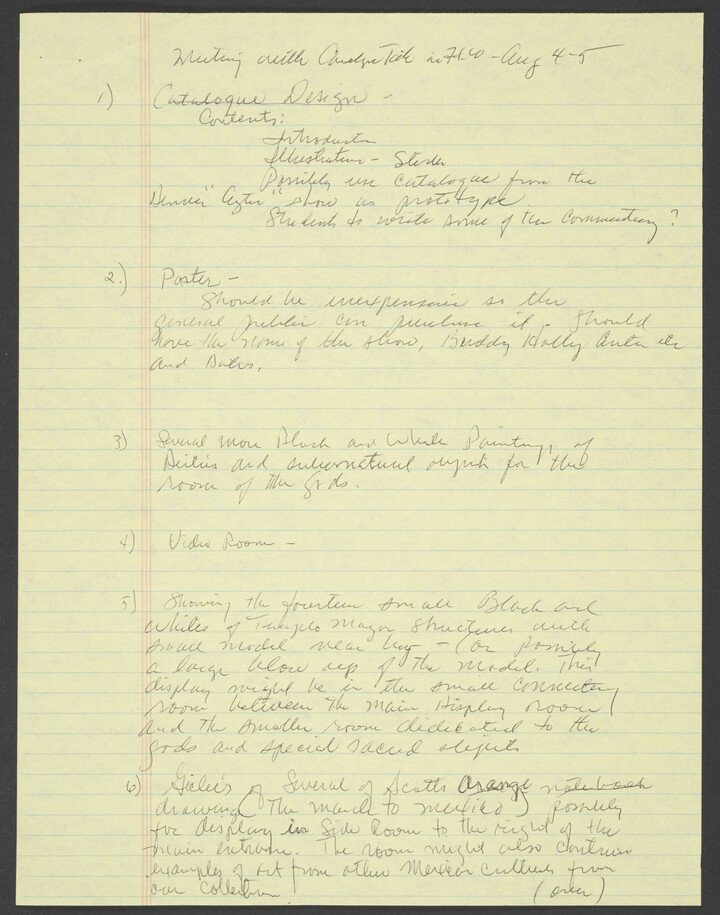 Meeting with Tek in - Aug 4-5
1) Catalogue Design -
Contents:
Introduction
Illustrations -
Possibly use catalogue from the
Denver "Aztec" show as prototype
Students to write some of the Commentary?
2.) Poster -
Should be inexpensive so the
general public can purchase it. Should
have the name of the show, Buddy Holly Center etc
and Dates.
3) Several more Black and White Paintings of
Deities and supernatural for the
room of the Gods.
4) Video Room -
5) Showing the fourteen small Black and
whites of Templo Mayor Structures with
small model near by - (or Possibly
a large blow up of the model. This
display might be in the small connecting
room between the main display room
and the smaller room dedicated to the
gods and special sacred objects
6) of Several of Scotts Orange notebook
drawings (The march to mexico) possibly
for display in Side Room to the right of the
main entrance. The room might also contain
examples of art from other Mexican Cultures from
our Collection. (over)